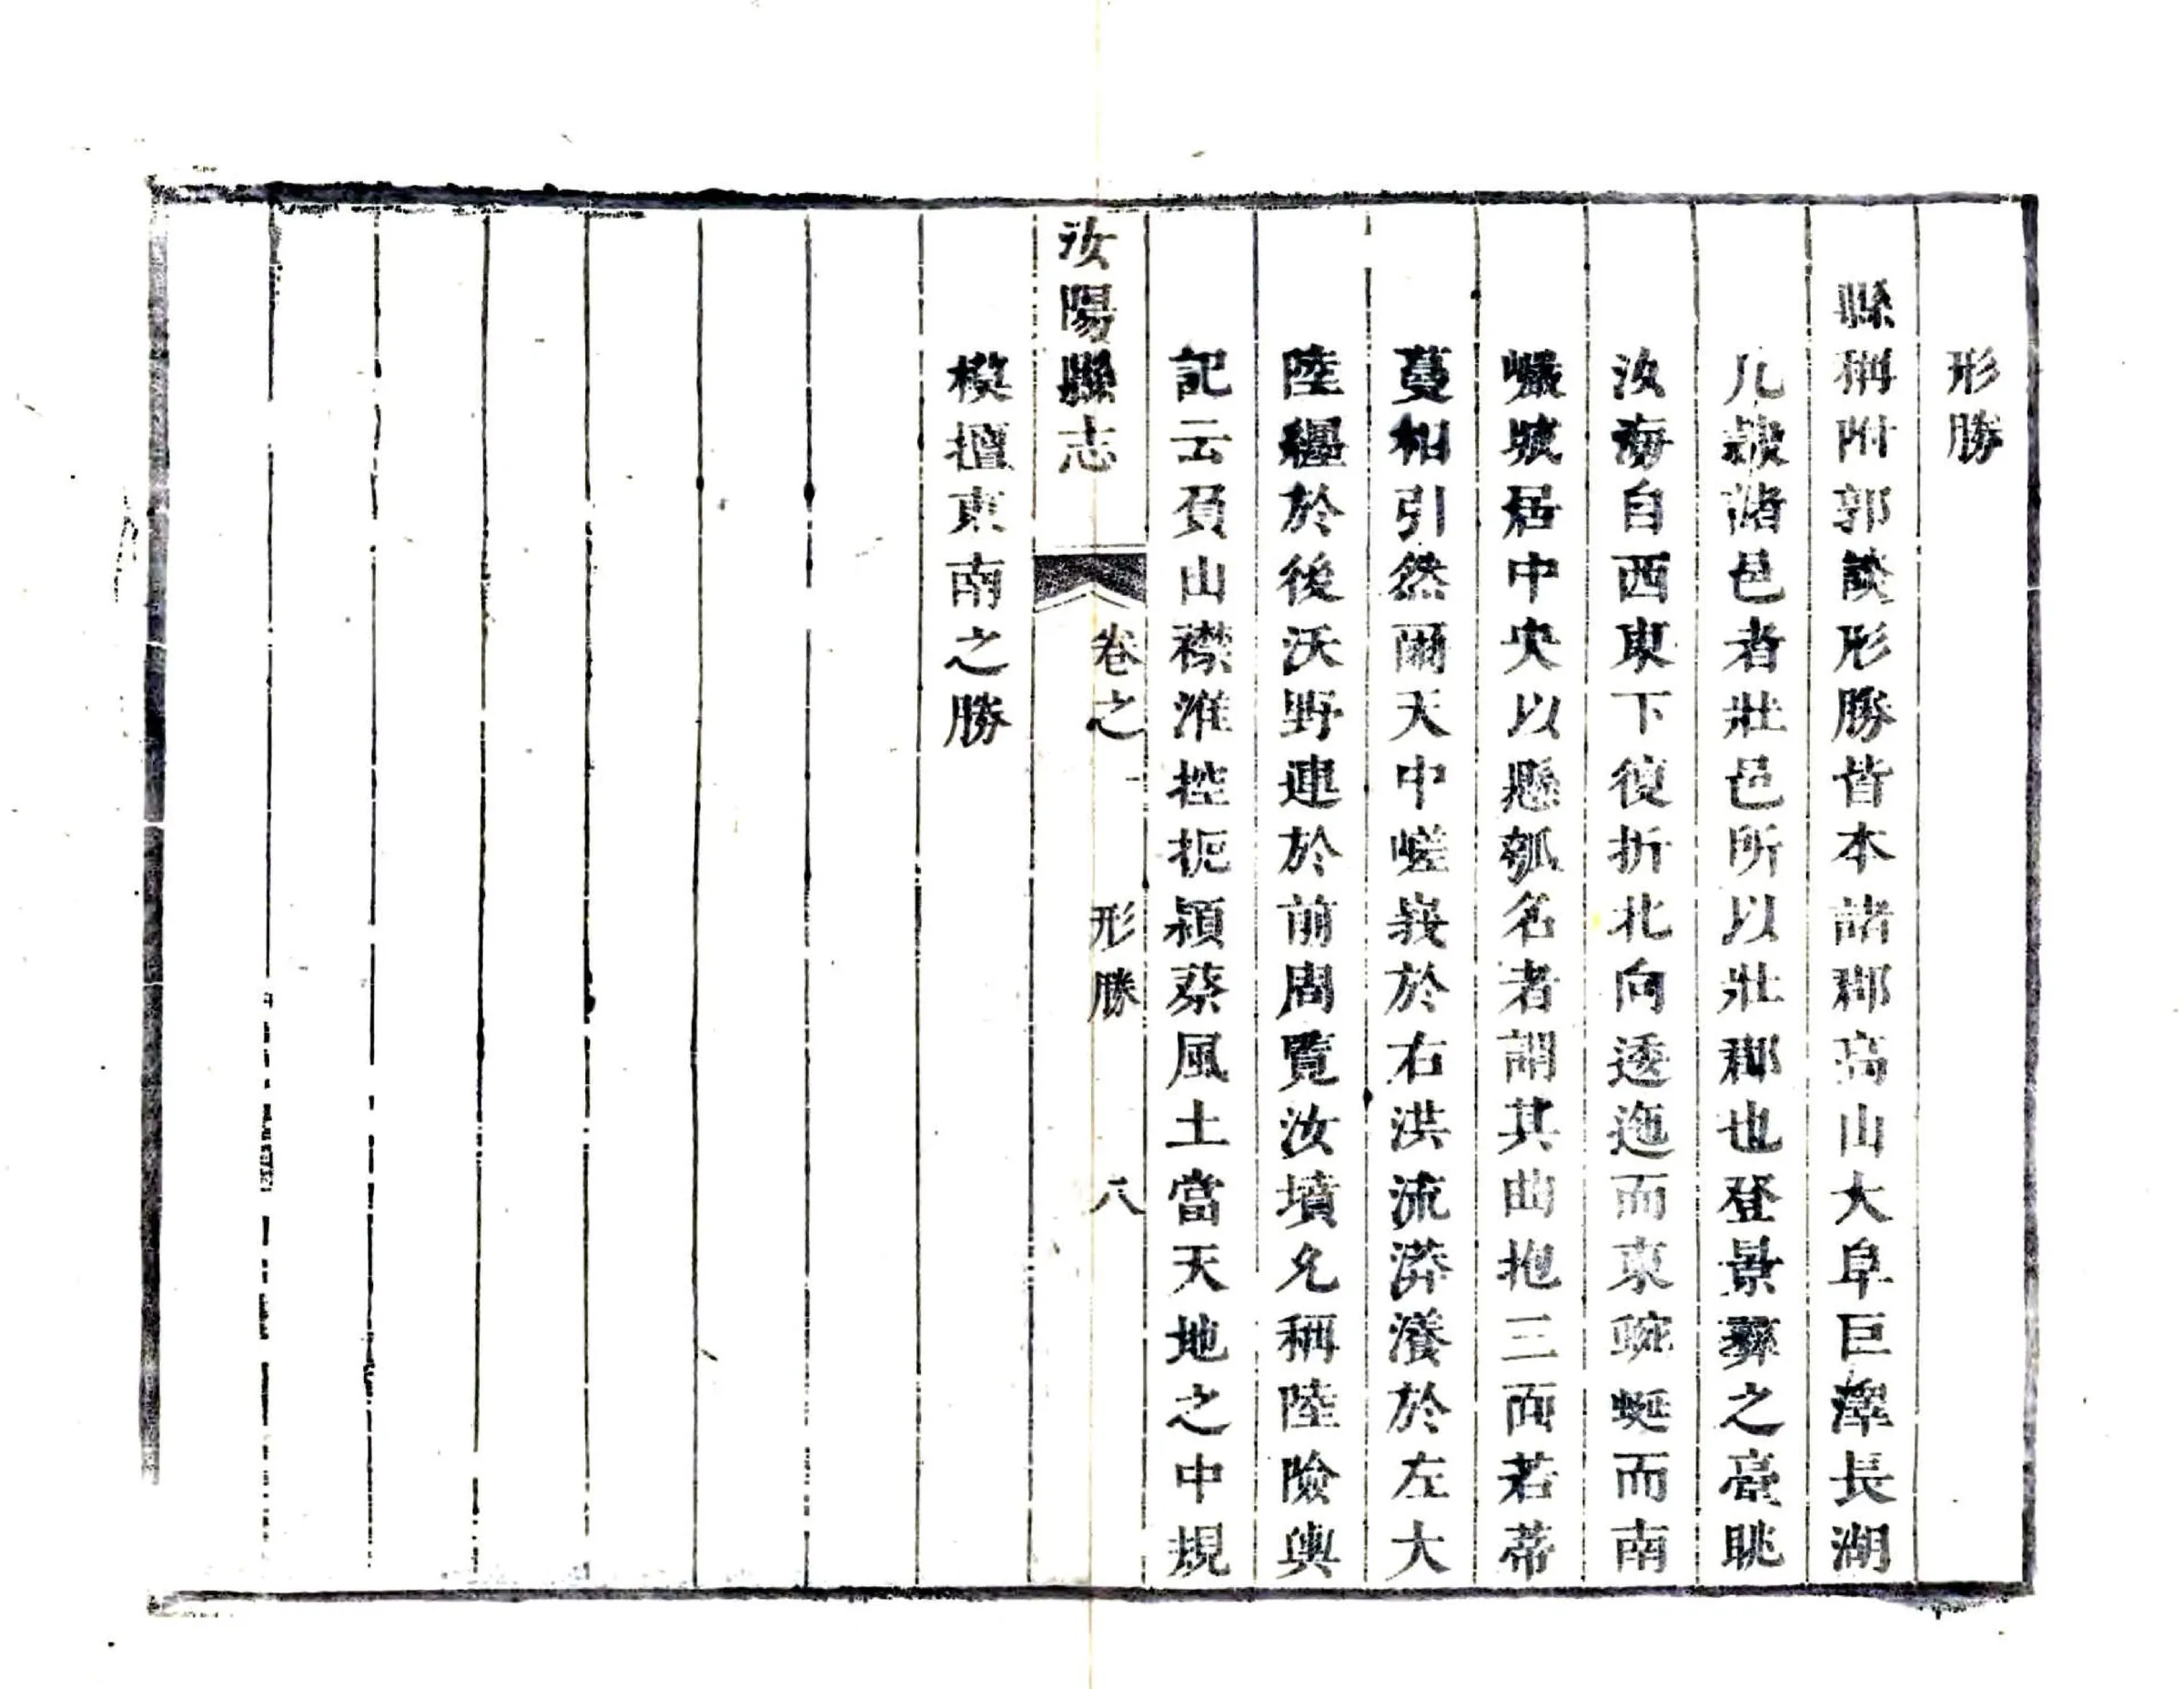 形勝
縣稱附郭談形勝皆本諸郡高山大阜巨澤長湖
凡隸諸邑者壯邑所以壯郡也登景彝之臺眺
汝海自西東下復折北向逶迤而東蜿蜒而南
巘 居中央以懸瓠名者謂其曲抱三面若蒂
蔓相引然爾天中嵯峩於右洪流漭瀁於左大
陸纒於後沃野連於前周覽汝墳允稱陸險輿
記云負山襟淮控扼潁蔡風土當天地之中規
模擅東南之勝
汝陽縣志
卷之一
形勝
八